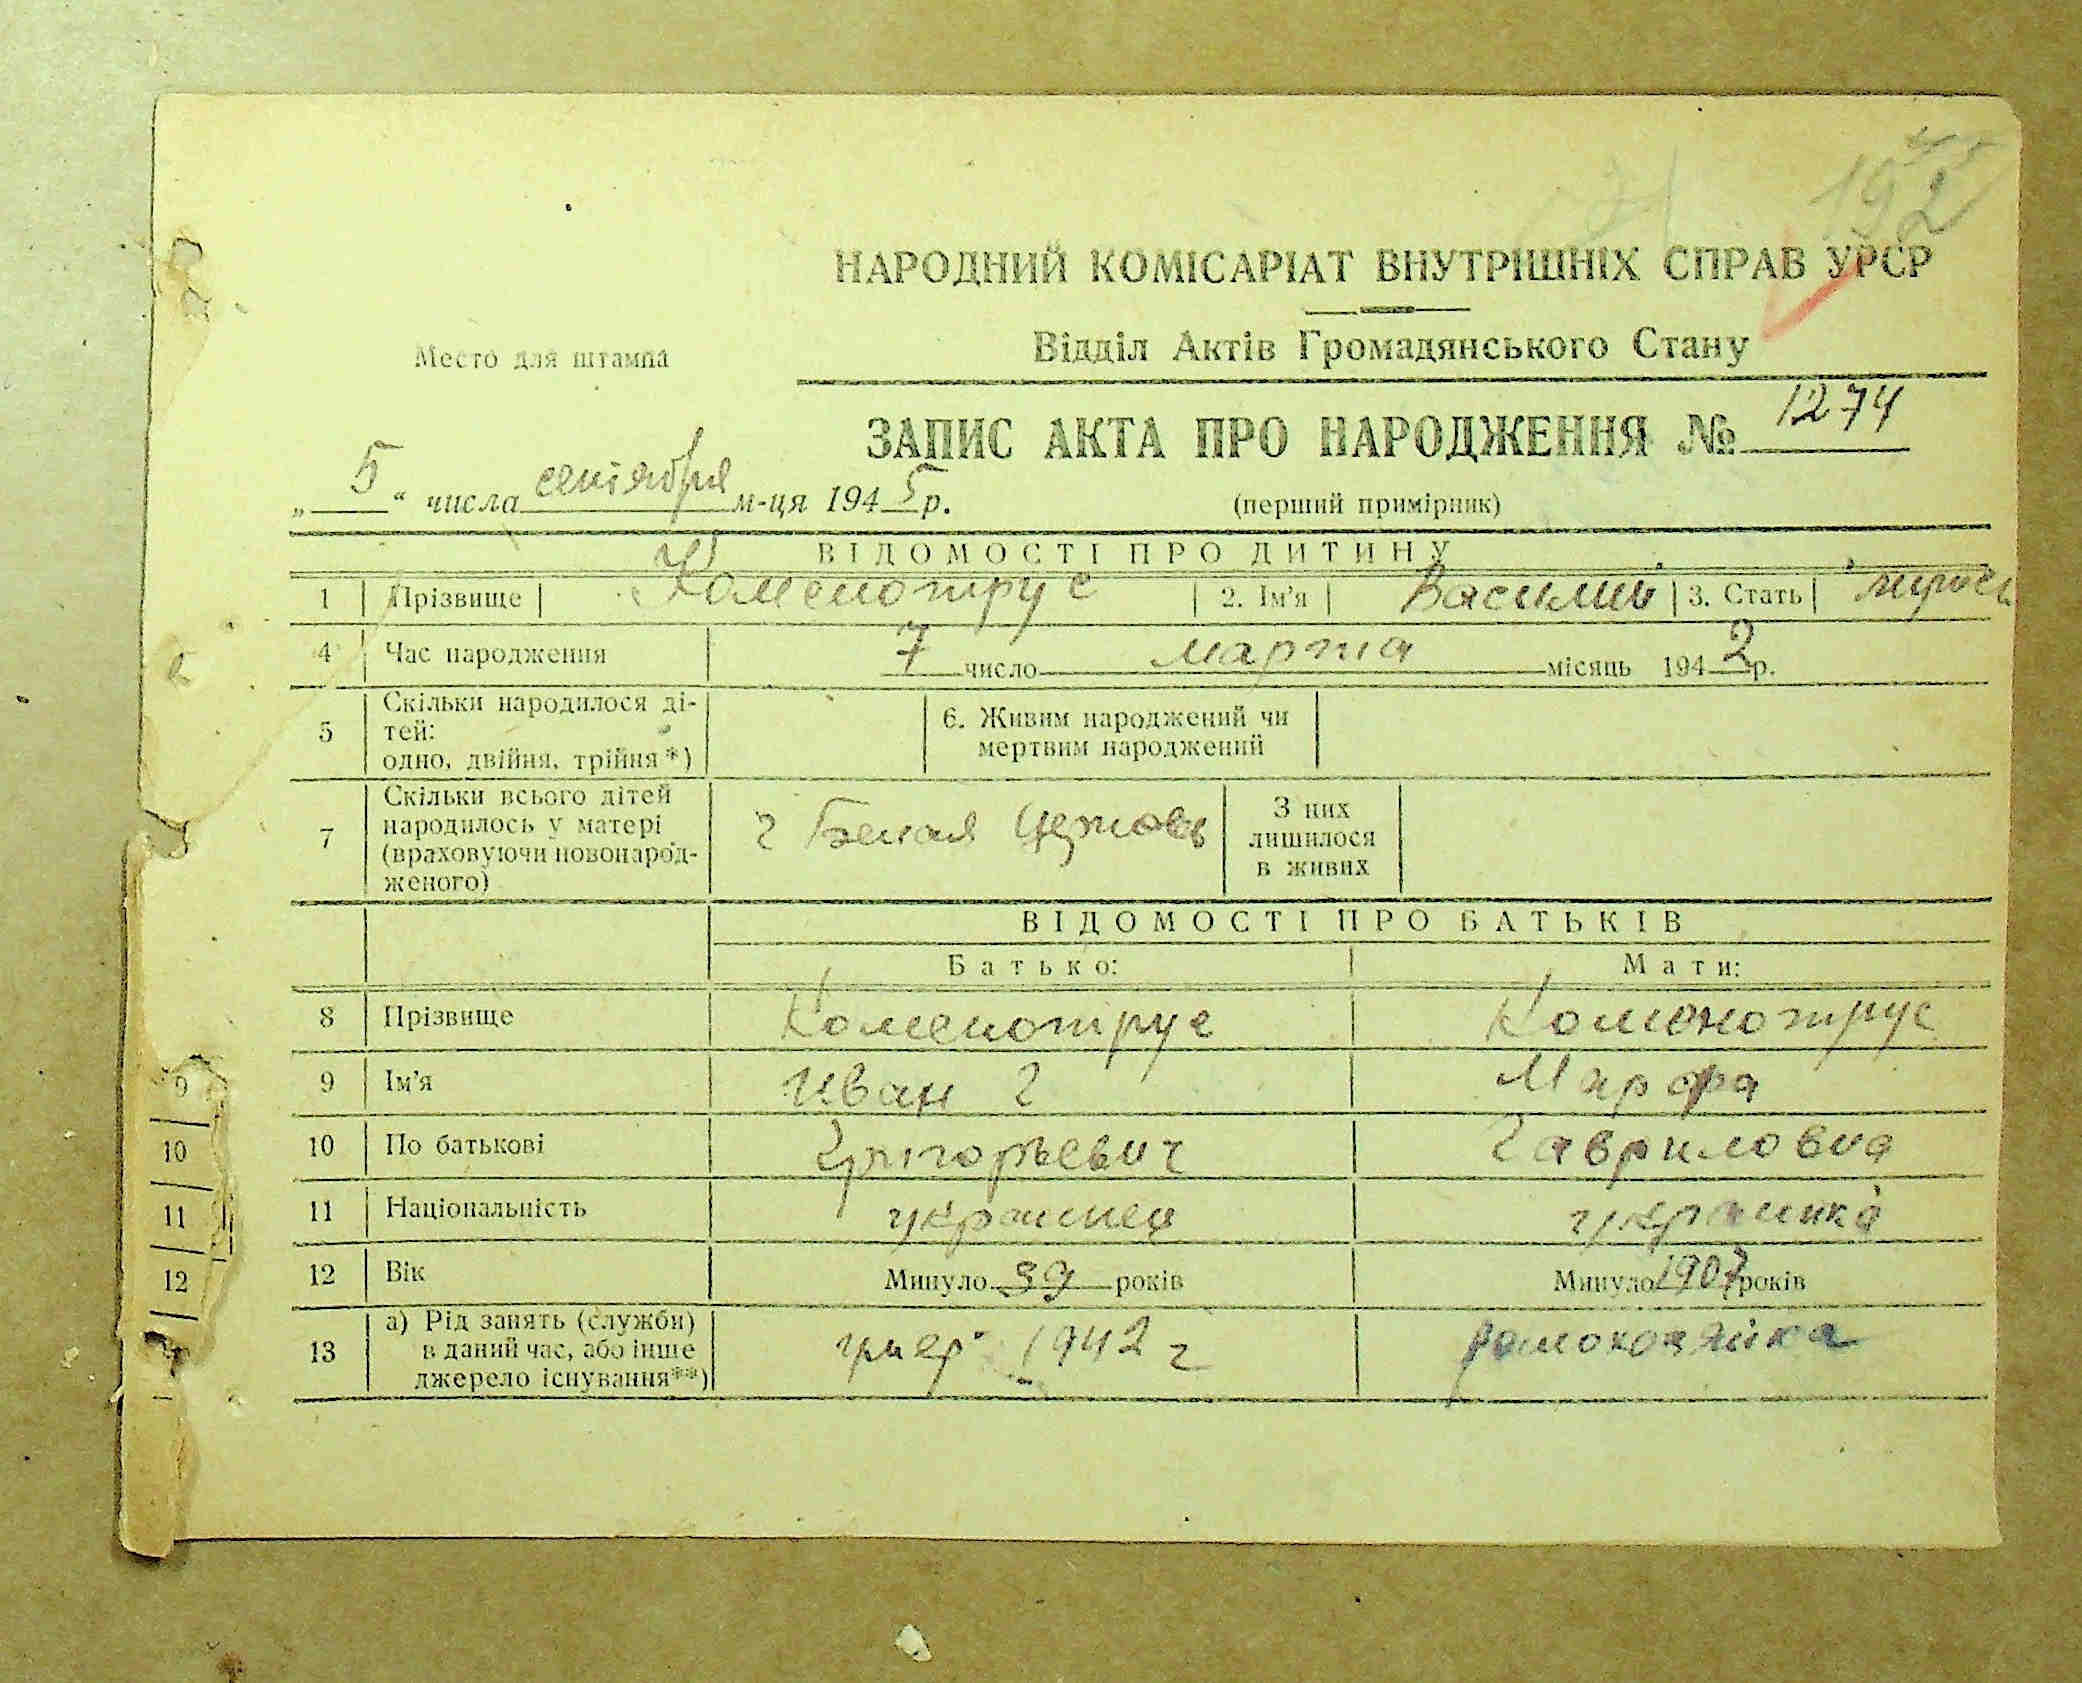 192
НАРОДНИЙ КОМІСАРІАТ ВНУТРІШНІХ СПРАВ УРСР
Место для штампа
Відділ Актів Громадянського Стану
ЗАПИС АКТА ПРО НАРОДЖЕННЯ № 1274
„ 5 “ числа сентября м-ця 1945 р.
(перший примірник)
ВІДОМОСТІ ПРО ДИТИНУ
1 Прізвище Коменотрус 2. Ім'я Василий 3. Стать мужск
4 Час народження 7 число марта місяць 1942 р.
5 Скільки народилося ді-
тей:
одно, двійня, трійня*)
6. Живим народжений чи
мертвим народжений
7 Скільки всього дітей
народилось у матері
(враховуючи новонарод-
женого)
г Белая Церковь
З них
лишилося
в живих
ВІДОМОСТІ ПРО БАТЬКІВ
Батько: Мати:
8 Прізвище Коменотрус Коменотрус
9 Ім'я Иван Г Марфа
10 По батькові Григорьевич Гавриловна
11 Національність украинец украинка
12 Вік Минуло 39 років Минуло 1907 років
13 а) Рід занять (служби)
в даний час, або інше
джерело існування**)
умер 1942 г домохозяйка
9
10
11
12